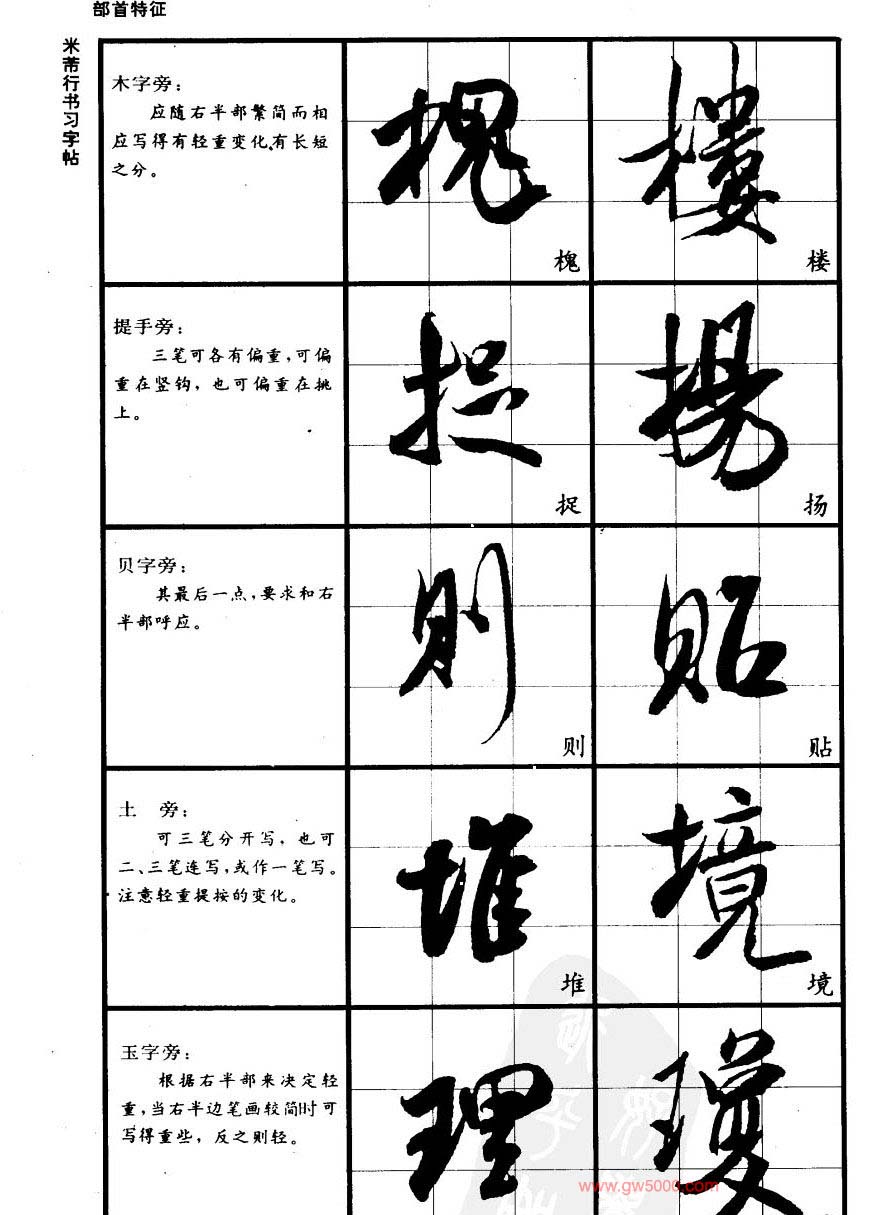 部首特征
米芾行书习字帖
木字旁：
应随右半部繁简而相
应写得有轻重变化，有长短
之分。
槐 樓
槐 楼
提手旁：
三笔可各有偏重，可偏
重在竖钩，也可偏重在挑
上。
捉 揚
捉 扬
贝字旁：
其最后一点，要求和右
半部呼应。
則 貼
则 贴
土 旁：
可三笔分开写，也可
二、三笔连写，或作一笔写。
注意轻重提按的变化。
堆 境
堆 境
玉字旁：
根据右半部来决定轻
重，当右半边笔画较简时可
写得重些，反之则轻。
理 瓊
www.gw5000.com